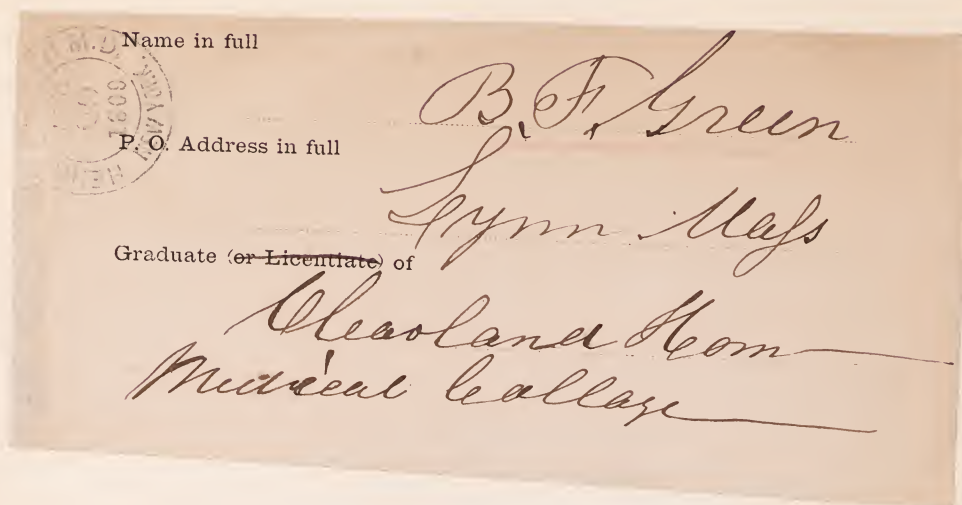 Name in full
B. F. Green
P. O. Address in full
Lynn Mass
Graduate (or Licentiate) of
Cleavland Hom
Medical Collage
M.D.
NEW YORK